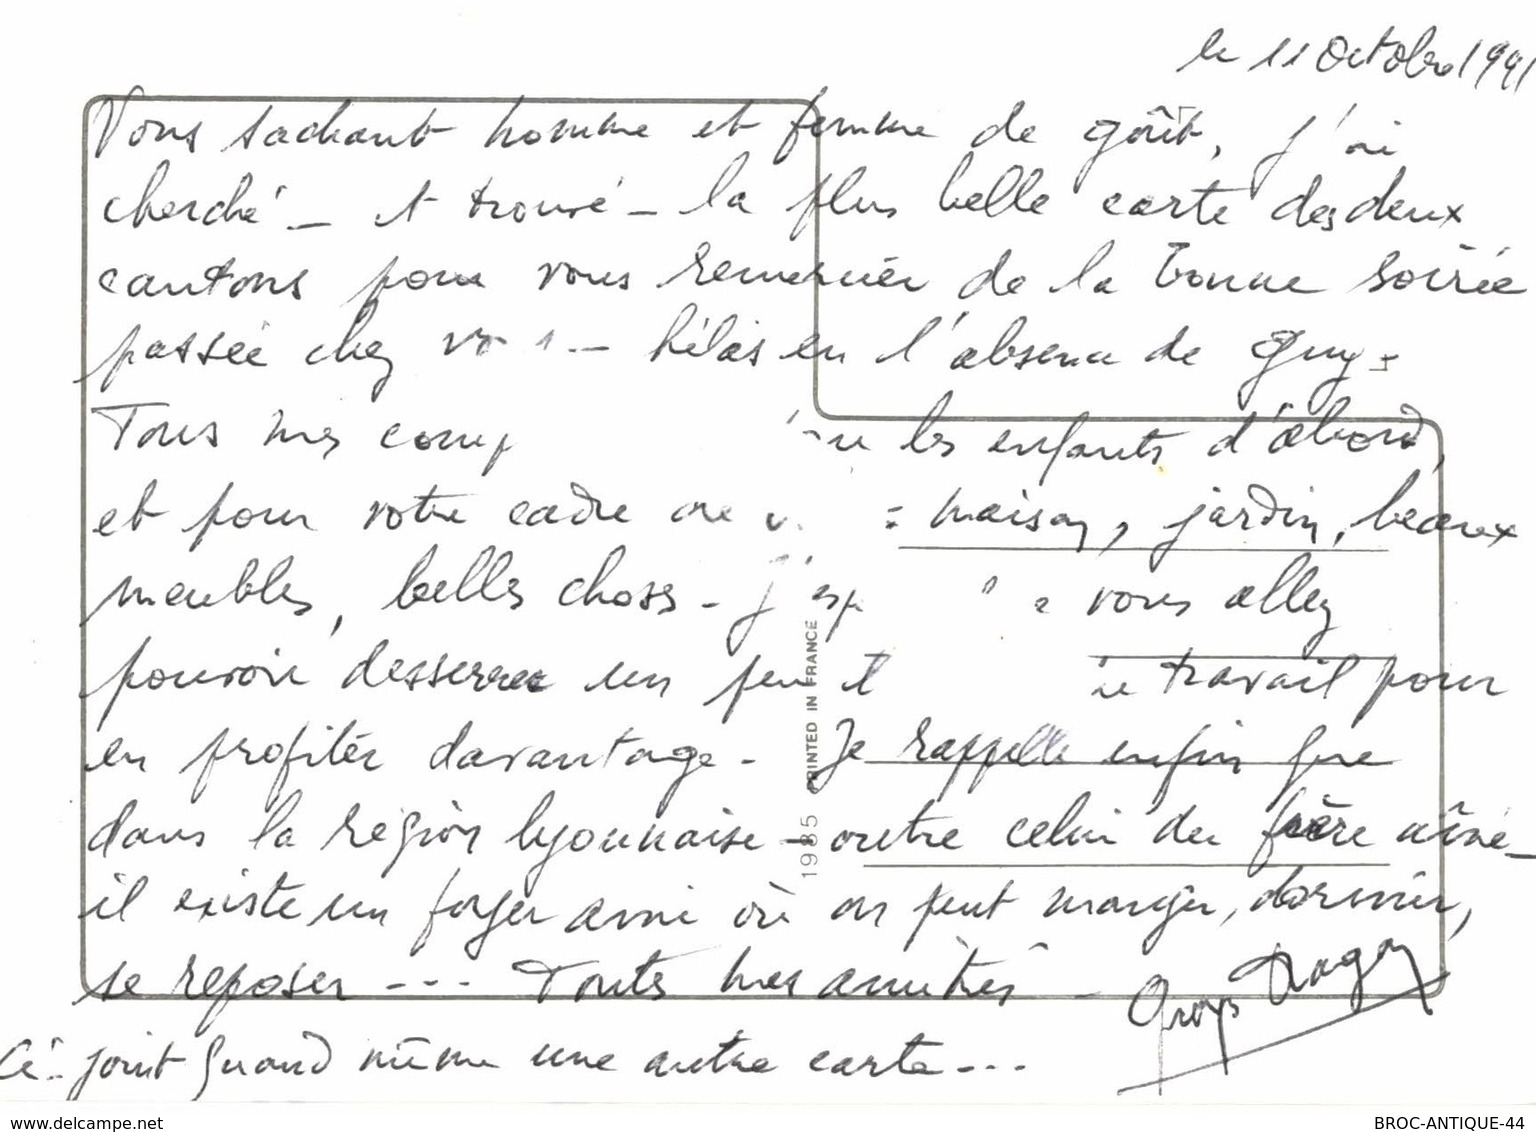 le 11 Octobre 1991
Vous sachant homme et femme de goût, j'ai
cherché - et trouvé - la plus belle carte des deux
cantons pour vous remercier de la bonne soirée
passée chez - hélas en l'absence de Guy -
Tous mes les enfants d'abord,
et pour votre cadre de : maison, jardin, beaux
meubles, belles choses - J' vous allez
pouvoir desserrer un peu travail pour
en profiter davantage - Je rappelle enfin que
dans la région lyonnaise - outre celui du frère aîné -
il existe un foyer ami où on peut manger, dormir,
se reposer --- Toutes mes amitiés -
Ci-joint quand même une autre carte ---
1985 PRINTED IN FRANCE
www.delcampe.net
BROC-ANTIQUE-44